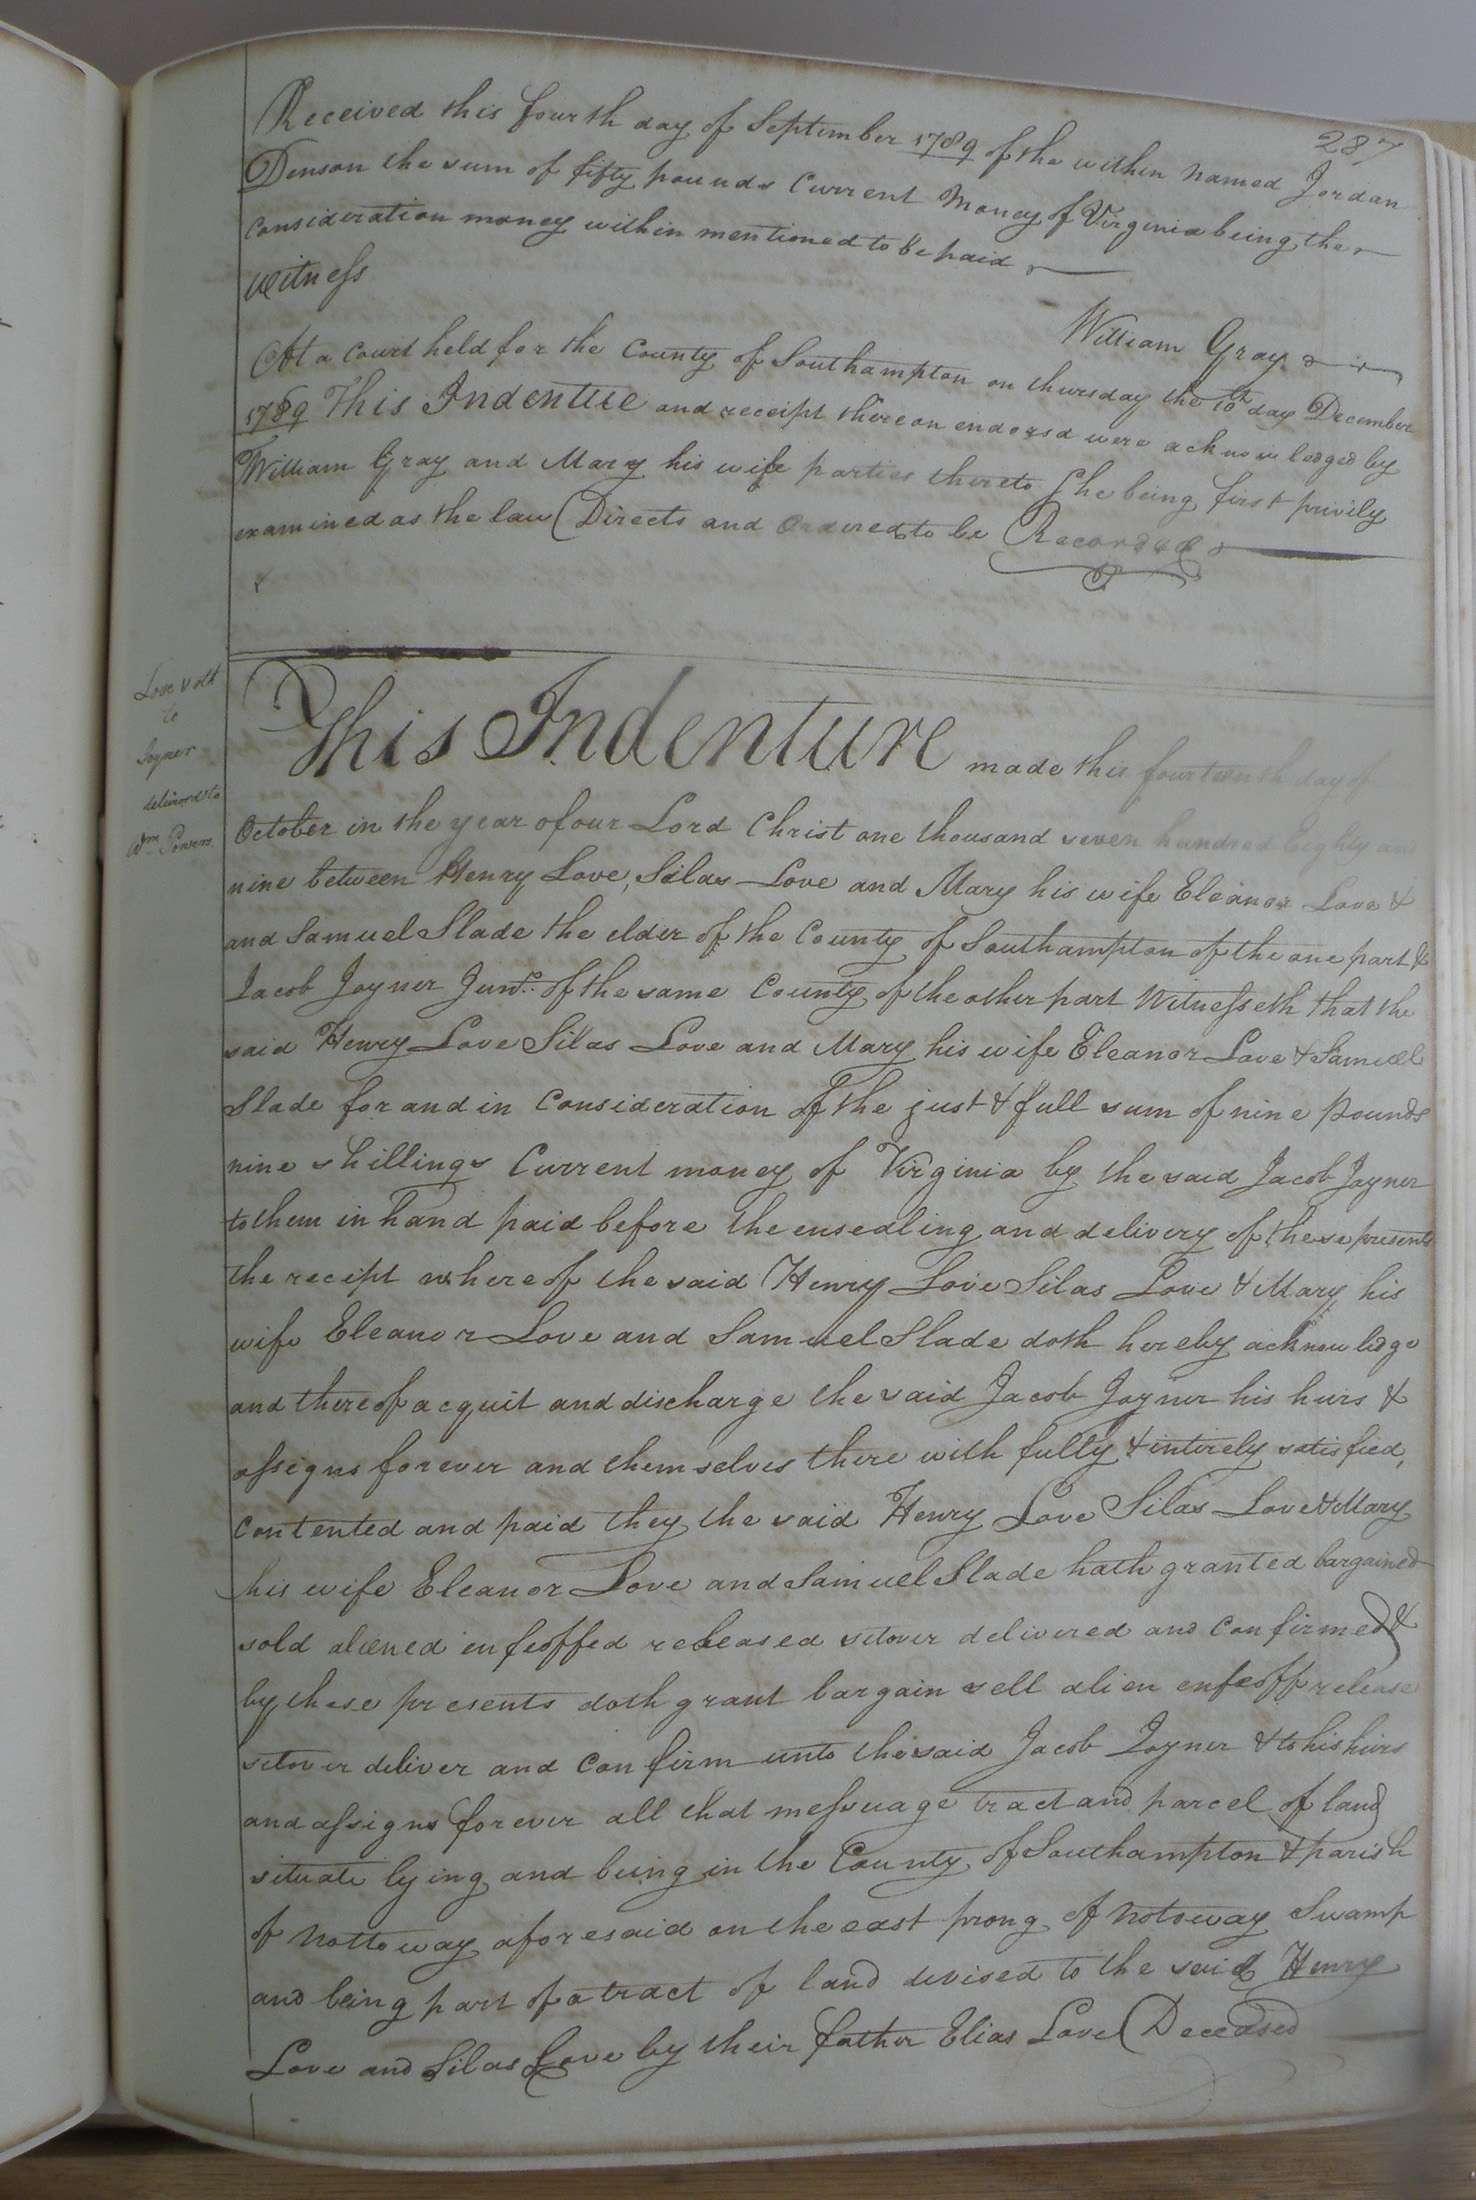 287
Received this fourth day of September 1789 of the within named Jordan
Denson the sum of fifty pounds Current Money of Virginia being the
consideration money within mentioned to be paid
Witness
William Gray
At a Court held for the County of Southampton on thursday the 10th day December
1789 This Indenture and receipt thereon endorsd were acknowledged by
William Gray and Mary his wife parties thereto She being first privily
examined as the law Directs and Ordered to be Recorded
Love &
to
Joyner
delivered to
Wm. Powers
This Indenture made this fourteenth day of
October in the year of our Lord Christ one thousand seven hundred Eighty and
nine between Henry Love, Silas Love and Mary his wife Eleanor Love &
and Samuel Slade the elder of the County of Southampton of the one part &
Jacob Joyner Junr. of the same County of the other part Witnesseth that the
said Henry Love Silas Love and Mary his wife Eleanor Love & Samuel
Slade for and in Consideration of the just & full sum of nine pounds
nine shillings Current money of Virginia by the said Jacob Joyner
to them in hand paid before the ensealing and delivery of these presents
the recipt whereof the said Henry Love Silas Love & Mary his
wife Eleanor Love and Samuel Slade doth hereby acknowledge
and thereof acquit and discharge the said Jacob Joyner his heirs &
assigns forever and themselves there with fully & intirely satisfied,
contented and paid they the said Henry Love Silas Love & Mary
his wife Eleanor Love and Samuel Slade hath granted bargained
sold aliened enfeoffed released setover delivered and confirmed &
by these presents doth grant bargain sell alien enfeoff release
setover deliver and confirm unto the said Jacob Joyner & to his heirs
and assigns forever all that messuage tract and parcel of land
situate lying and being in the County of Southampton & parish
of Nottoway aforesaid on the east prong of Notoway Swamp
and being part of a tract of land devised to the said Henry
Love and Silas Love by their father Elias Love Deceased